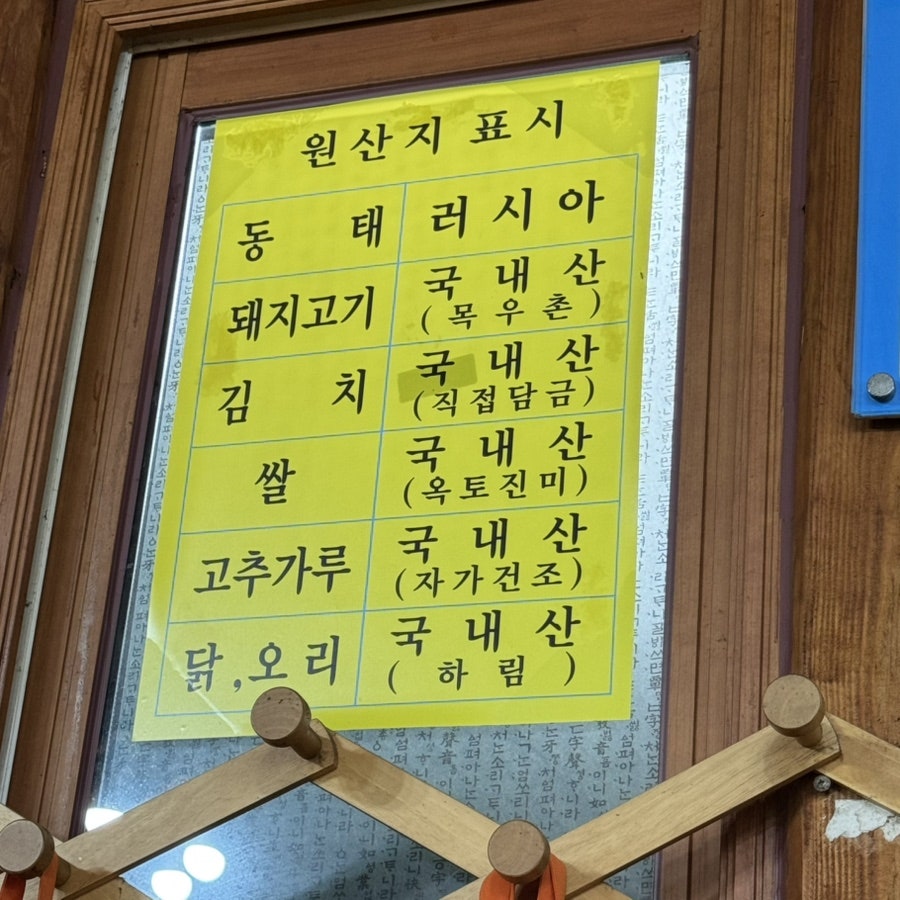 원산지 표시
동태 러시아
돼지고기 국내산
(목우촌)
김치 국내산
(직접담금)
쌀 국내산
(옥토진미)
고추가루 국내산
(자가건조)
닭,오리 국내산
(하림)